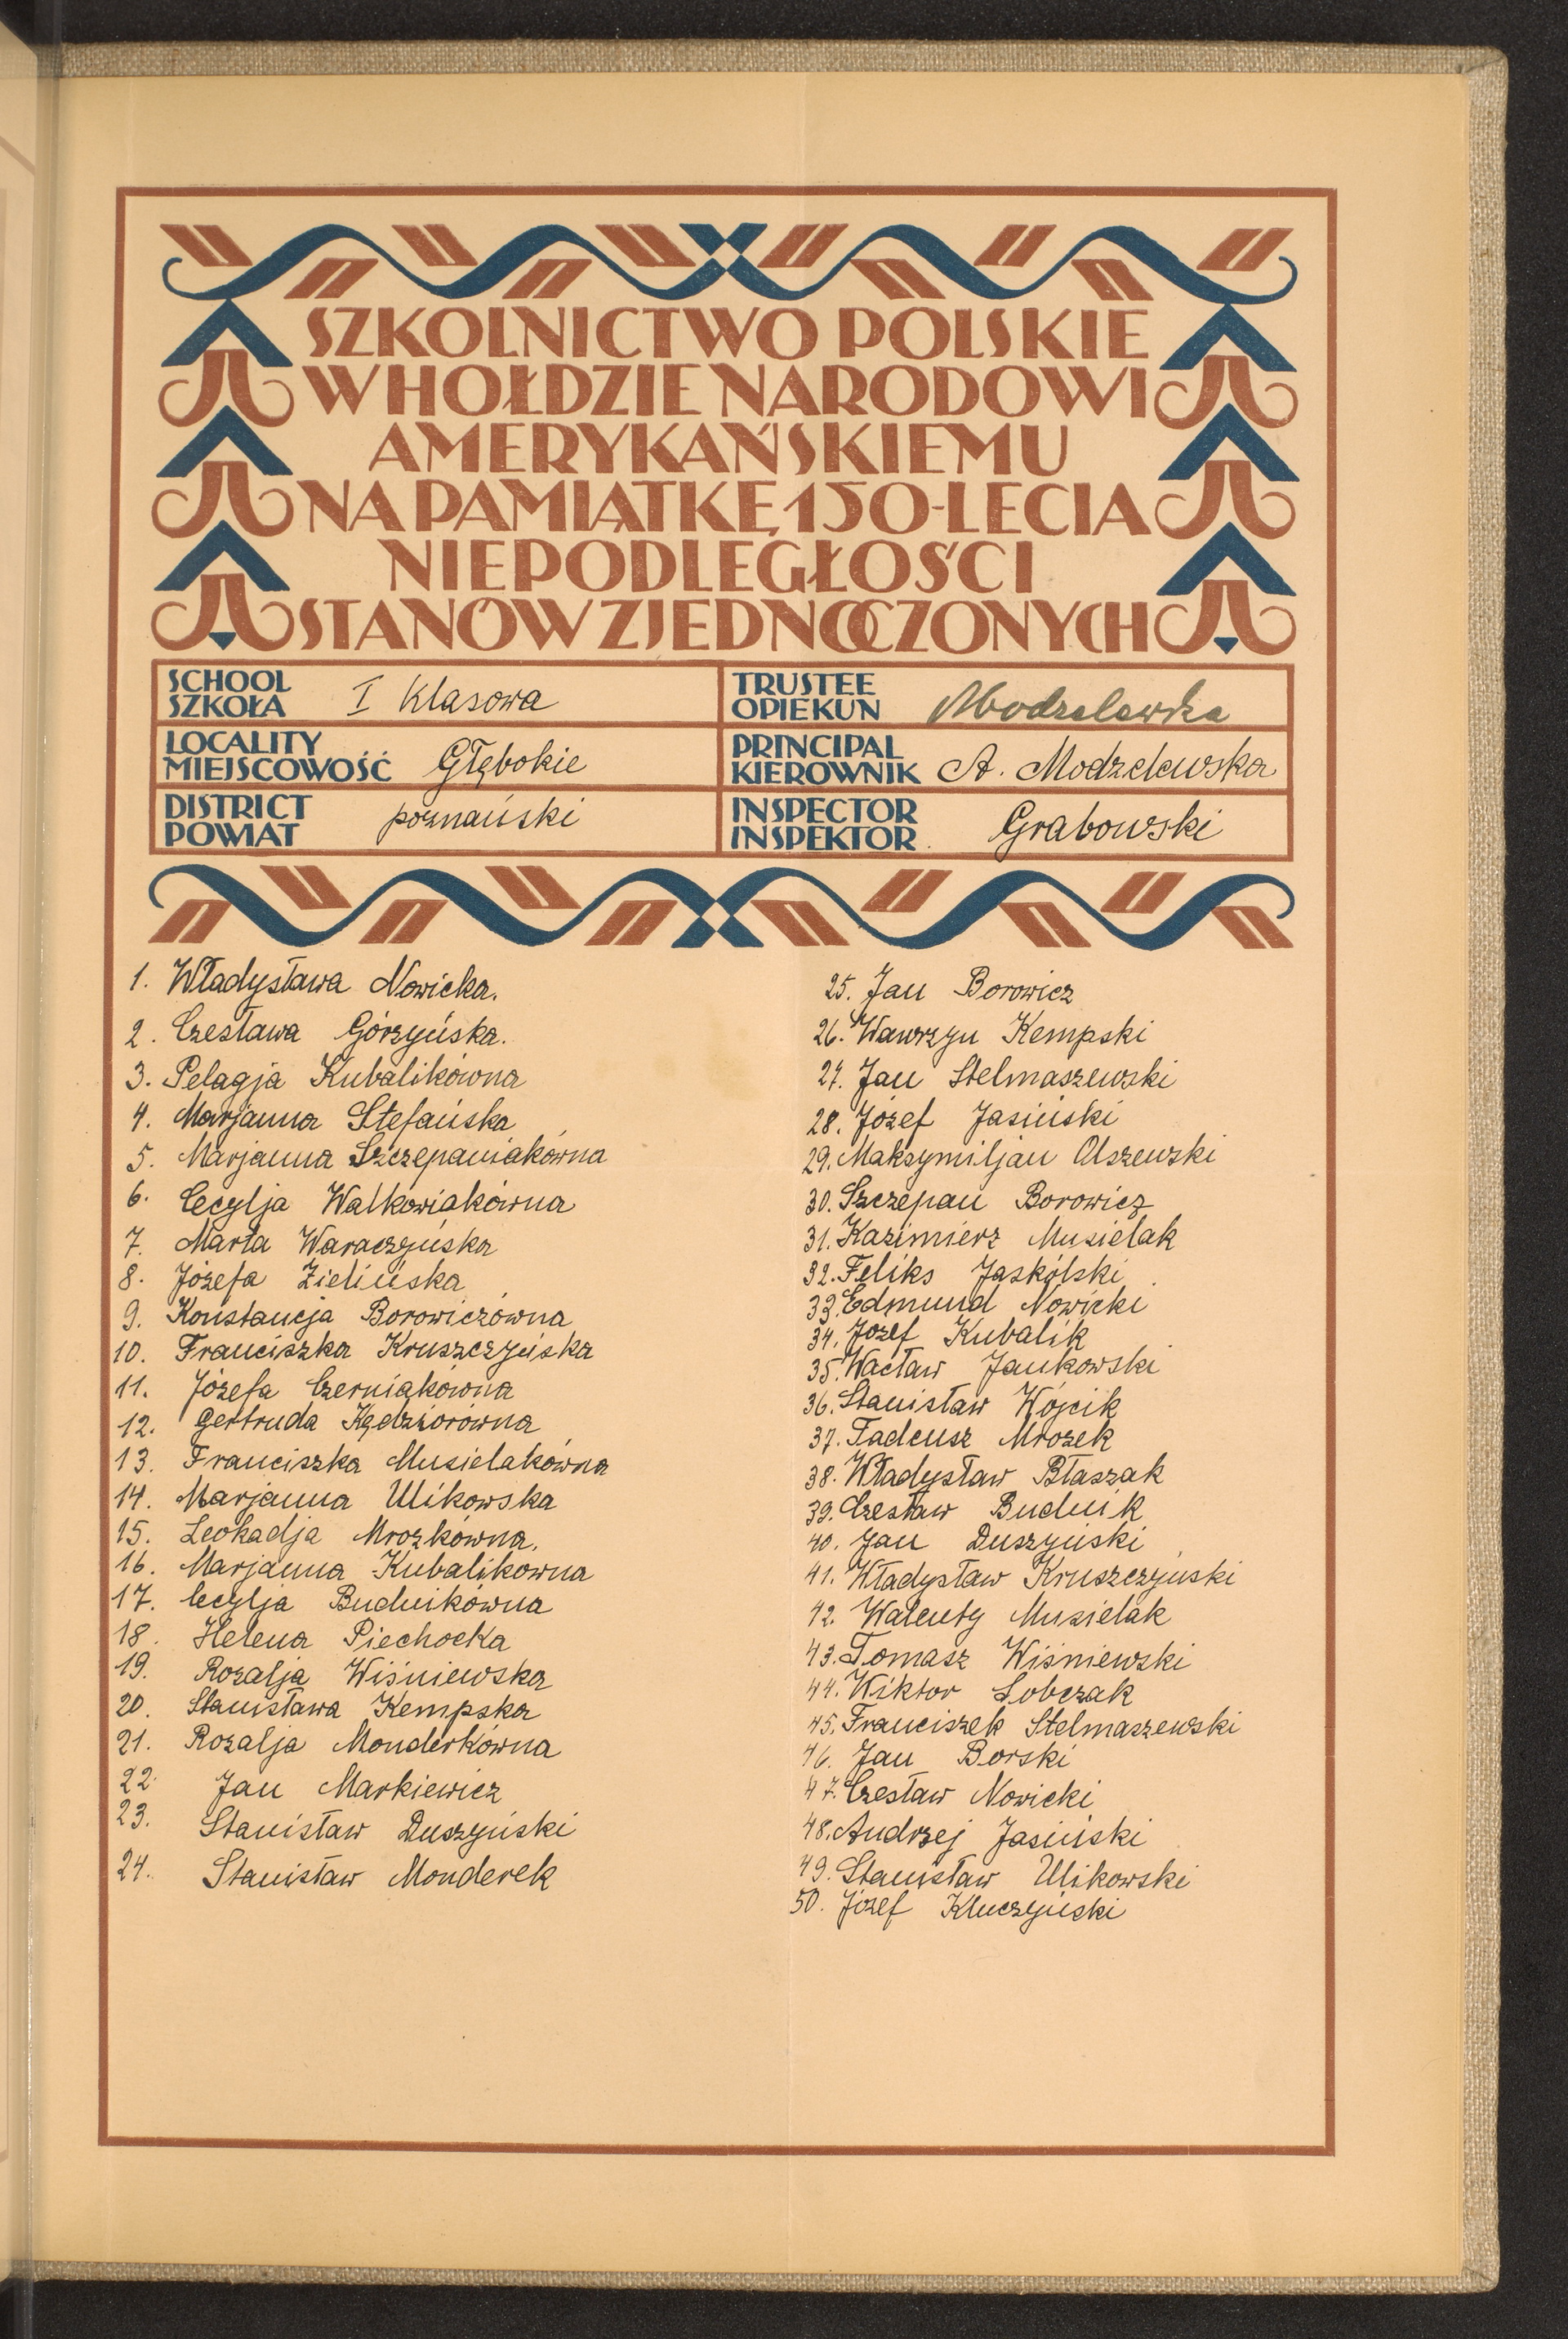 SZKOLNICTWO POLSKIE
W HOŁDZIE NARODOWI
AMERYKAŃSKIEMU
NA PAMIĄTKĘ 150-LECIA
NIEPODLEGŁOŚCI
STANÓW ZJEDNOCZONYCH
SCHOOL
SZKOŁA
I Klasowa
TRUSTEE
OPIEKUN
Modzelewska
LOCALITY
MIEJSCOWOŚĆ
Głębokie
PRINCIPAL
KIEROWNIK
A. Modzelewska
DISTRICT
POWIAT
poznański
INSPECTOR
INSPEKTOR
Grabowski
1. Władysława Nowicka.
2. Czesława Górzyńska.
3. Pelagja Kubalikówna
4. Marjanna Stefańska
5. Marjanna Szczepaniakówna
6. Cecylja Walkowiakówna
7. Marta Waraczyńska
8. Józefa Zielińska
9. Konstancja Borowiczówna
10. Franciszka Kruszczyńska
11. Józefa Czerniakówna
12. Gertruda Kędziorówna
13. Franciszka Musielakówna
14. Marjanna Ulikowska
15. Leokadja Mrozkówna.
16. Marjanna Kubalikówna
17. Cecylja Budnikówna
18. Helena Piechocka
19. Rozalja Wiśniewska
20. Stanisława Kempska
21. Rozalja Monderkówna
22. Jan Markiewicz
23. Stanisław Duszyński
24. Stanisław Monderek
25. Jan Borowicz
26. Wawrzyn Kempski
27. Jan Stelmaszewski
28. Józef Jasiński
29. Maksymiljan Olszewski
30. Szczepan Borowicz
31. Kazimierz Musielak
32. Feliks Jaskólski
33. Edmund Nowicki
34. Józef Kubalik
35. Wacław Jankowski
36. Stanisław Wójcik
37. Tadeusz Mrozek
38. Władysław Błaszak
39. Czesław Budnik
40. Jan Duszyński
41. Władysław Kruszczyński
42. Walenty Musielak
43. Tomasz Wiśniewski
44. Wiktor Sobczak
45. Franciszek Stelmaszewski
46. Jan Borski
47. Czesław Nowicki
48. Andrzej Jasiński
49. Stanisław Ulikowski
50. Józef Kluczyński